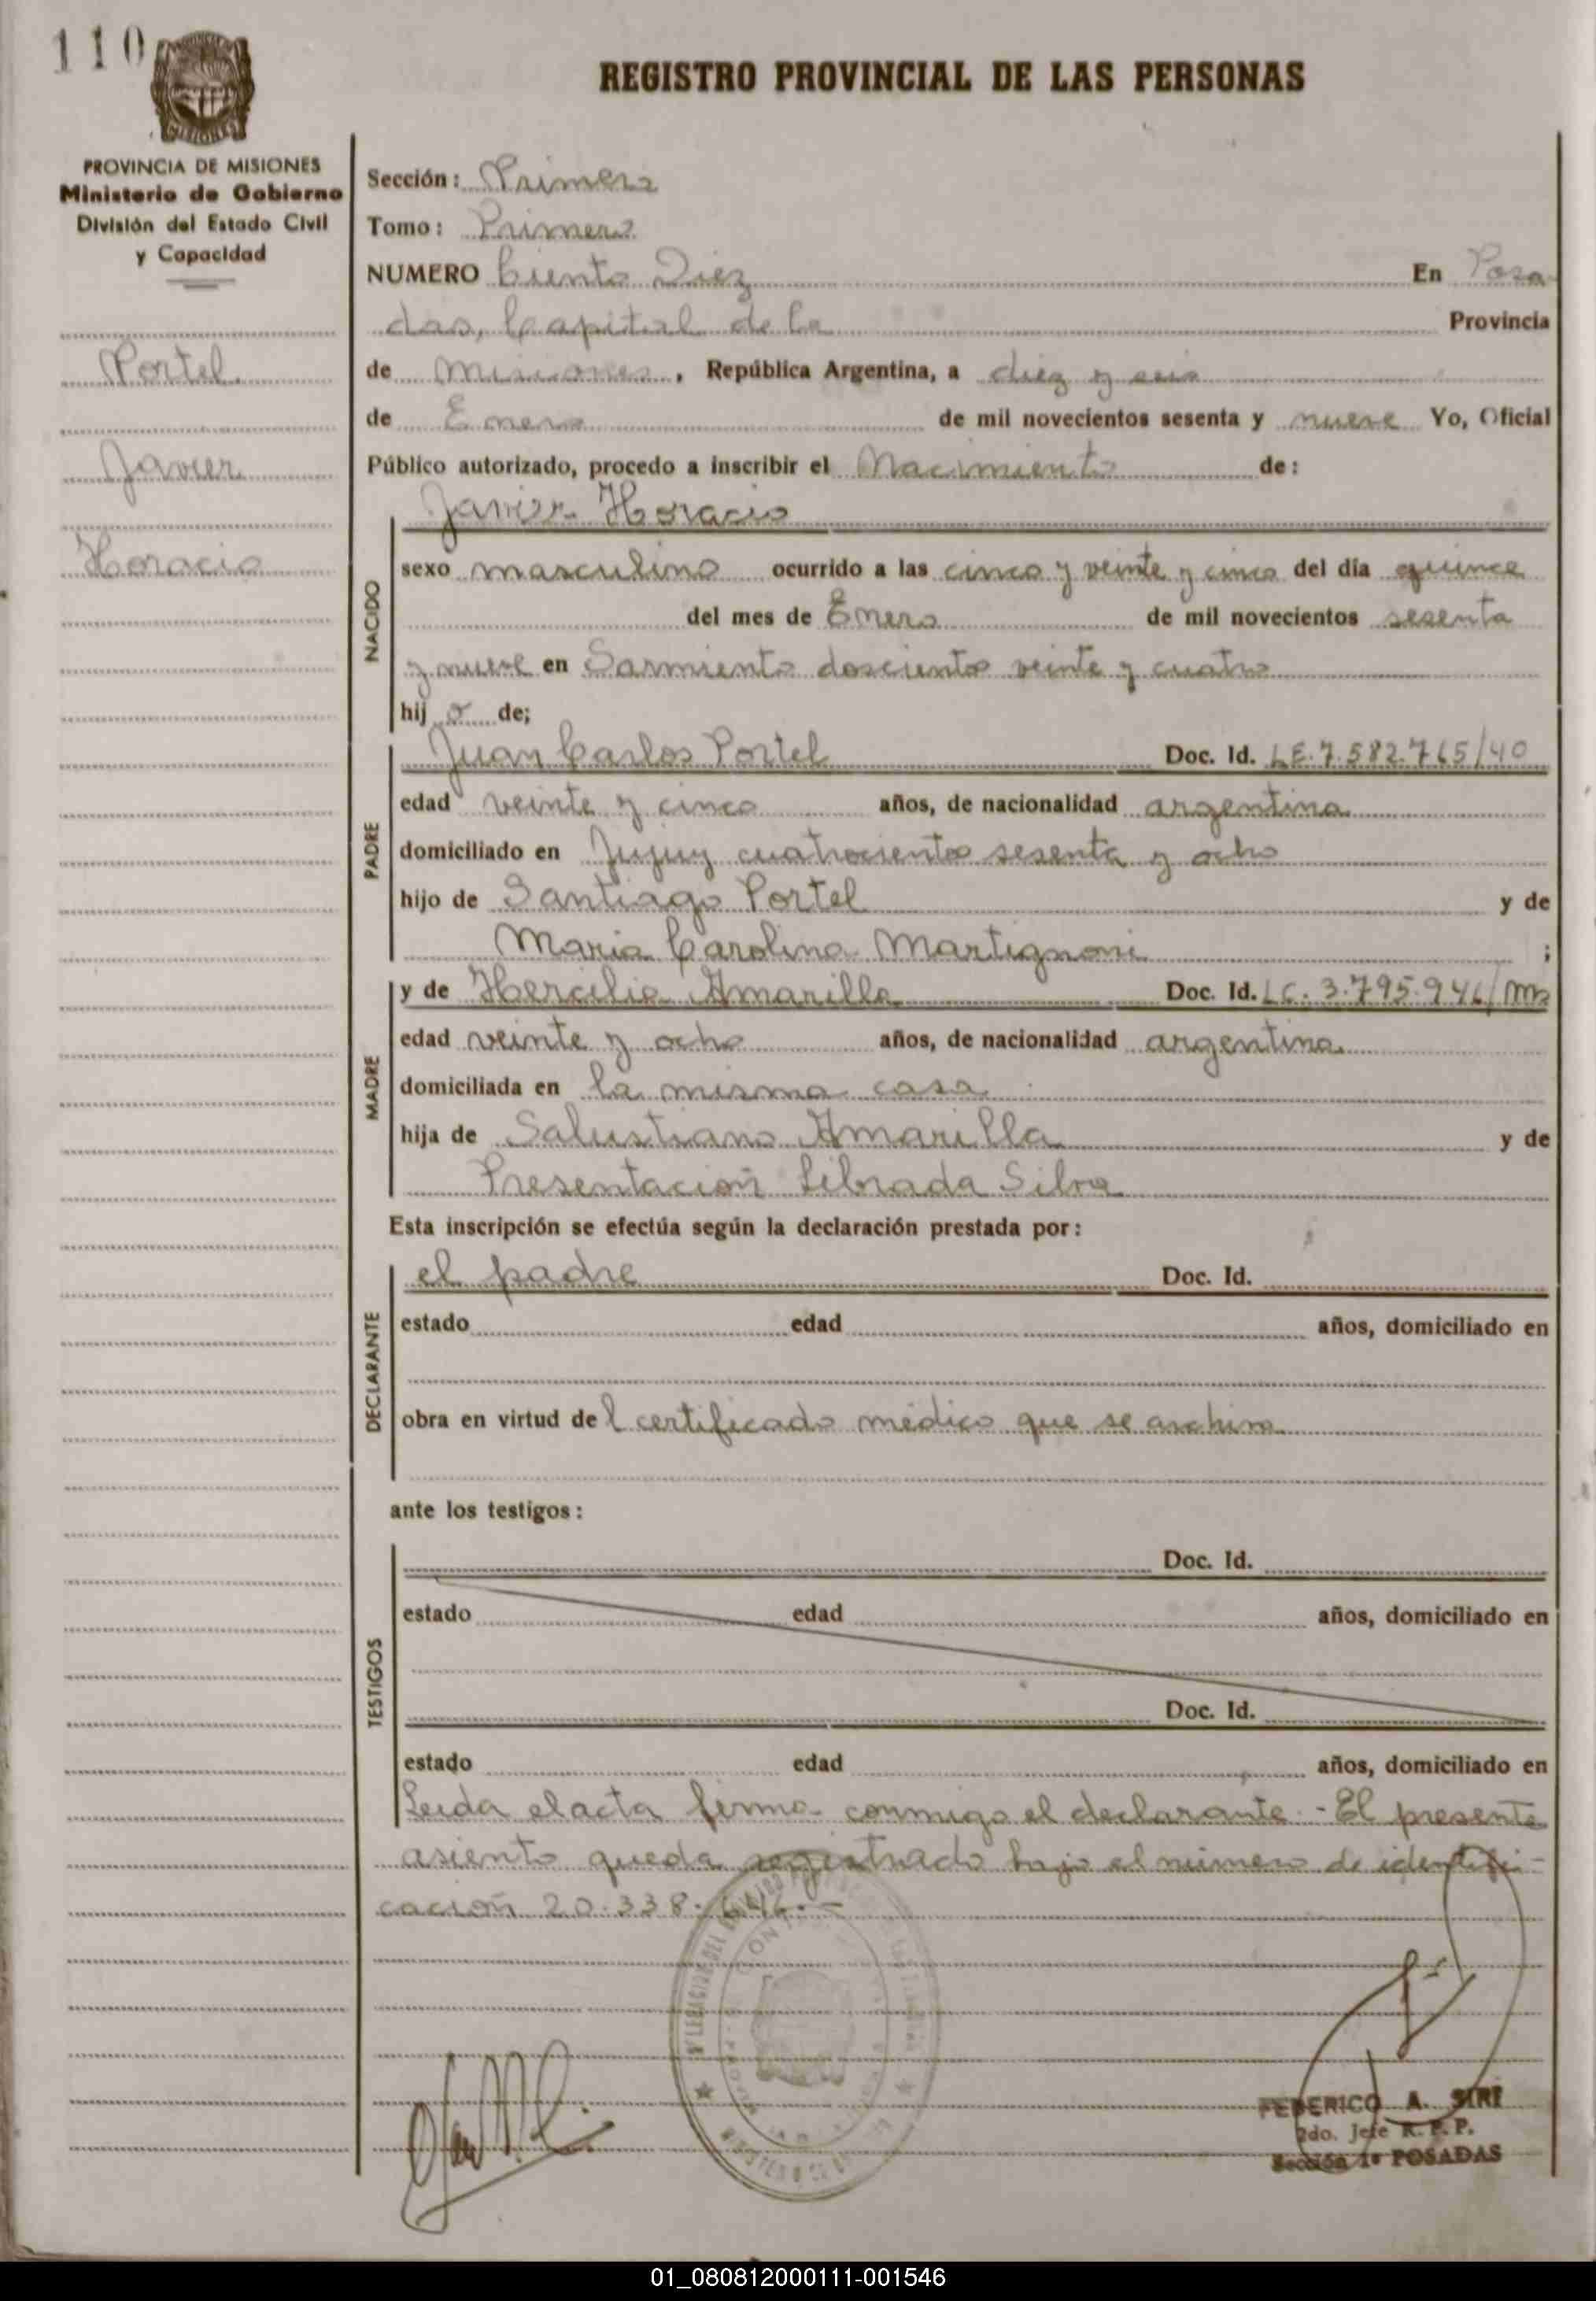 110
REGISTRO PROVINCIAL DE LAS PERSONAS
MISIONES
PROVINCIA DE MISIONES
Ministerio de Gobierno
División del Estado Civil
y Capacidad
Portel
Javier
Horacio
Sección: Primera
Tomo: Primero
NUMERO Ciento Diez En Posa-
das, Capital de la Provincia
de Misiones, República Argentina, a diez y seis
de Enero de mil novecientos sesenta y nueve Yo, Oficial
Público autorizado, procedo a inscribir el Nacimiento de:
Javier Horacio
NACIDO
sexo masculino ocurrido a las cinco y veinte y cinco del día quince
del mes de Enero de mil novecientos sesenta
y nueve en Sarmiento doscientos veinte y cuatro
hij o de;
PADRE
Juan Carlos Portel Doc. Id. LE. 7.582.765/40
edad veinte y cinco años, de nacionalidad argentina
domiciliado en Jujuy cuatrocientos sesenta y ocho
hijo de Santiago Portel y de
Maria Carolina Martignoni ;
MADRE
y de Hercilia Amarilla Doc. Id. LC. 3.795.946/Ms
edad veinte y ocho años, de nacionalidad argentina
domiciliada en la misma casa
hija de Salustiano Amarilla y de
Presentación Librada Silva
Esta inscripción se efectúa según la declaración prestada por:
DECLARANTE
el padre Doc. Id.
estado edad años, domiciliado en
obra en virtud de l certificado médico que se archiva
ante los testigos:
TESTIGOS
Doc. Id.
estado edad años, domiciliado en
Doc. Id.
estado edad años, domiciliado en
Leida el acta firma conmigo el declarante.- El presente
asiento queda registrado bajo el número de identifi-
cación 20.338.646.-
FEDERICO A. SIRI
2do. Jefe R. P. P.
Sección 1ª POSADAS
01_080812000111-001546